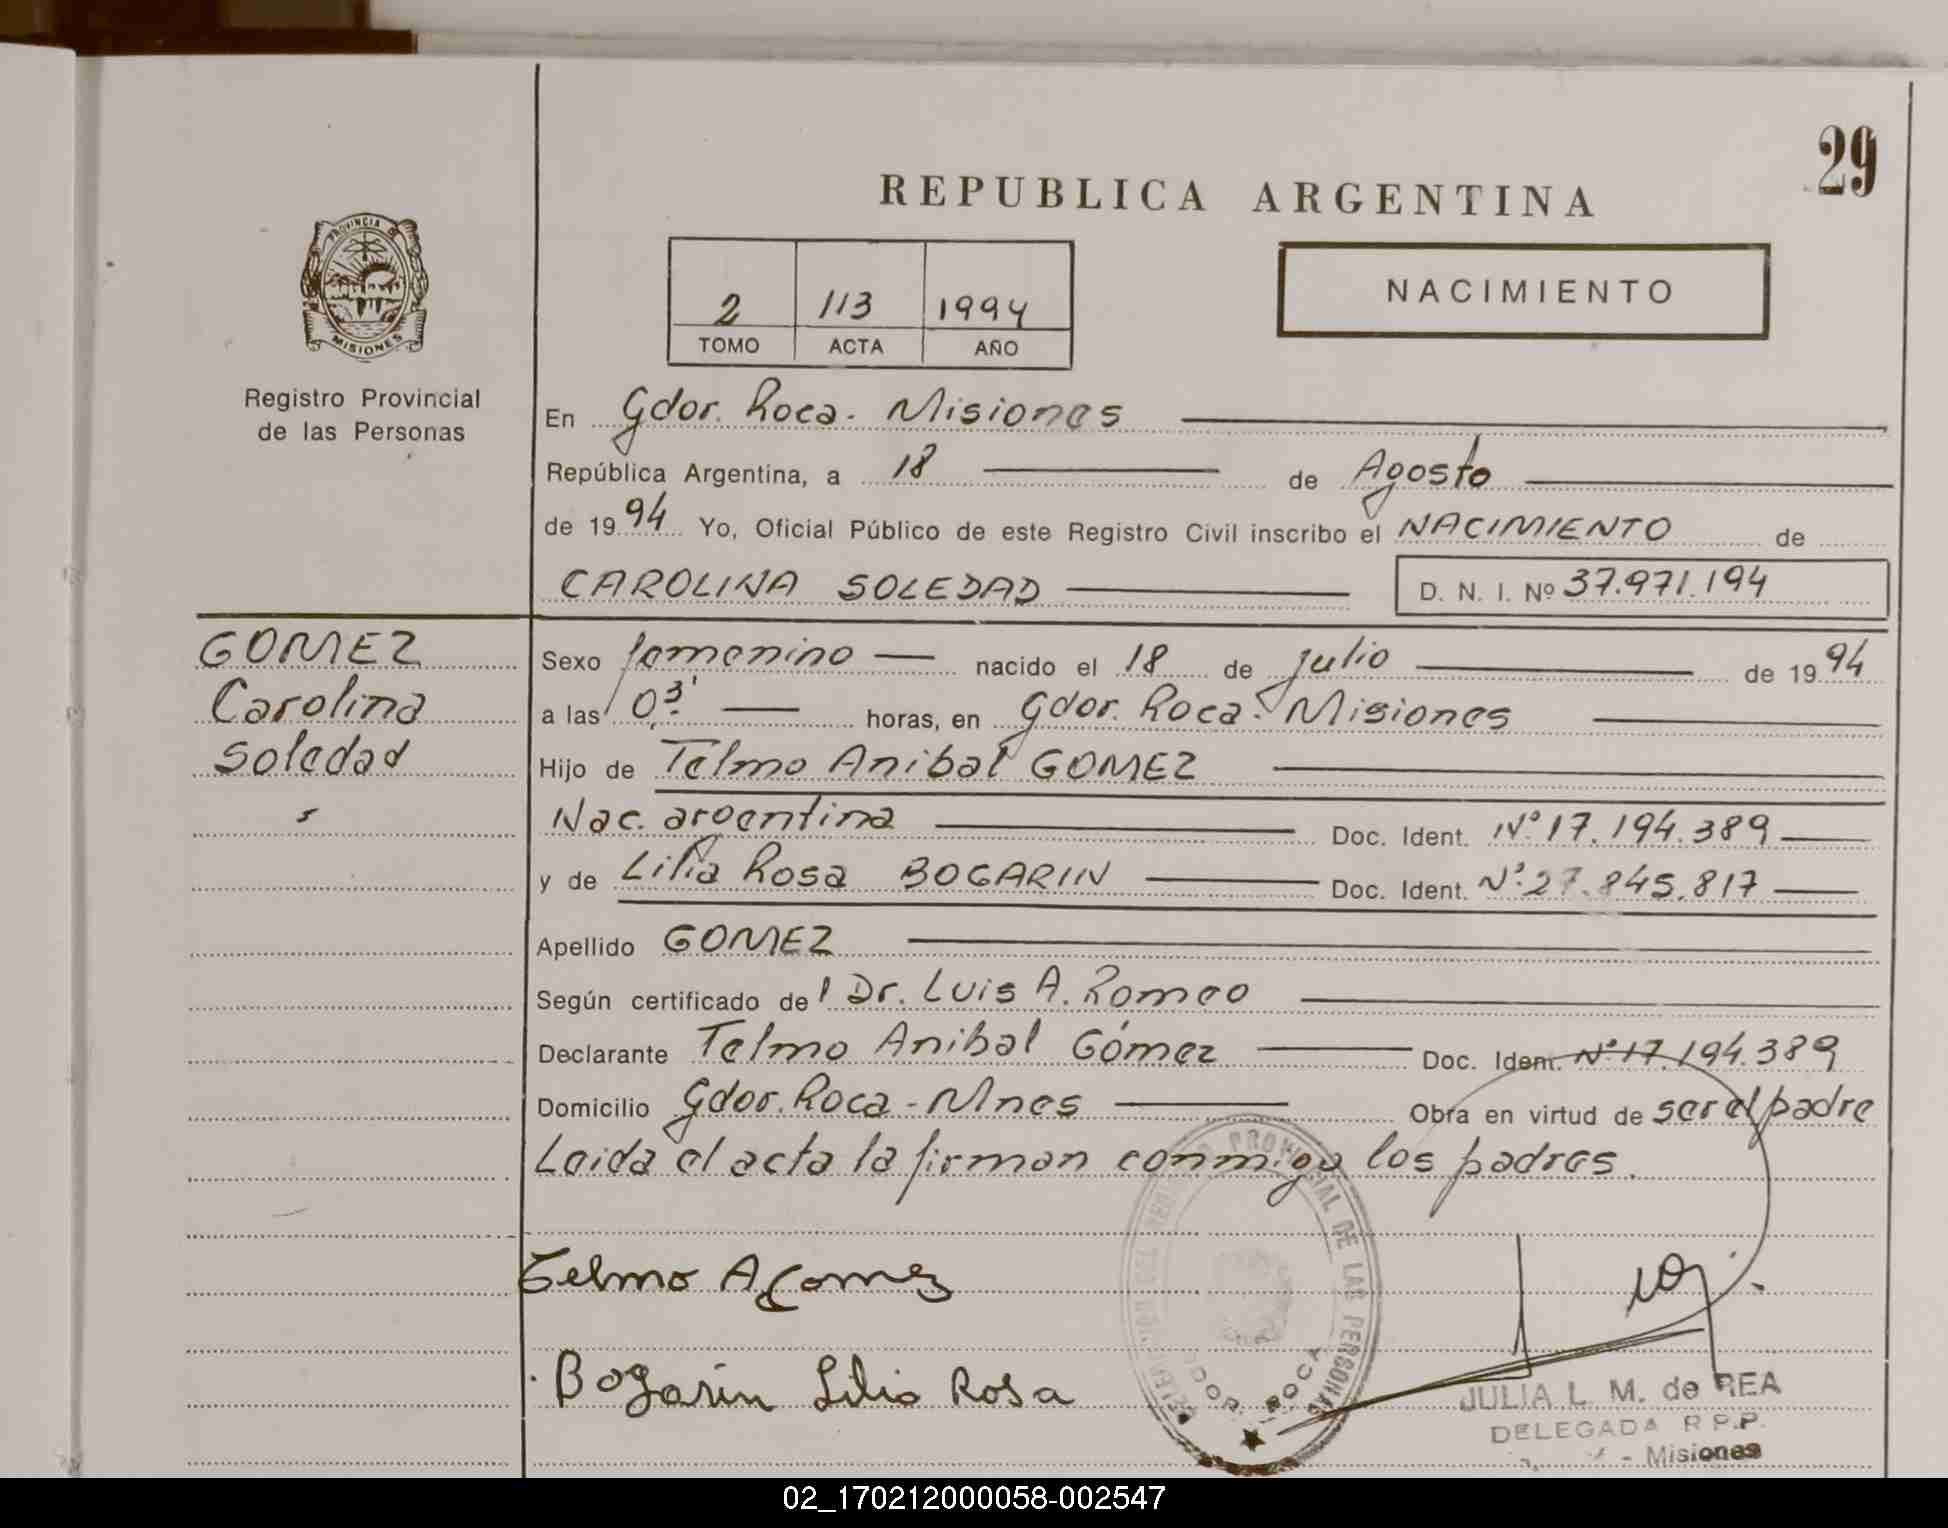 29
REPUBLICA ARGENTINA
PROVINCIA DE
MISIONES
Registro Provincial
de las Personas
2 113 1994
TOMO ACTA AÑO
NACIMIENTO
En Gdor. Roca - Misiones
República Argentina, a 18 de Agosto
de 1994 Yo, Oficial Público de este Registro Civil inscribo el NACIMIENTO de
CAROLINA SOLEDAD D. N. I. Nº 37.971.194
GOMEZ
Carolina
Soledad
Sexo femenino nacido el 18 de julio de 1994
a las 03 horas, en Gdor. Roca - Misiones
Hijo de Telmo Anibal GOMEZ
Nac. argentina Doc. Ident. Nº 17.194.389
y de Lilia Rosa BOGARIN Doc. Ident. Nº 27.845.817
Apellido GOMEZ
Según certificado del Dr. Luis A. Romeo
Declarante Telmo Anibal Gómez Doc. Ident. Nº 17.194.389
Domicilio Gdor. Roca - Mnes Obra en virtud de ser el padre
Leida el acta la firman conmigo los padres.
Telmo A Gomez
Bogarin Lilia Rosa
PROVINCIAL DE LAS PERSONAS
GDOR. ROCA
JULIA L. M. de REA
DELEGADA R.P.P.
- Misiones
02_170212000058-002547